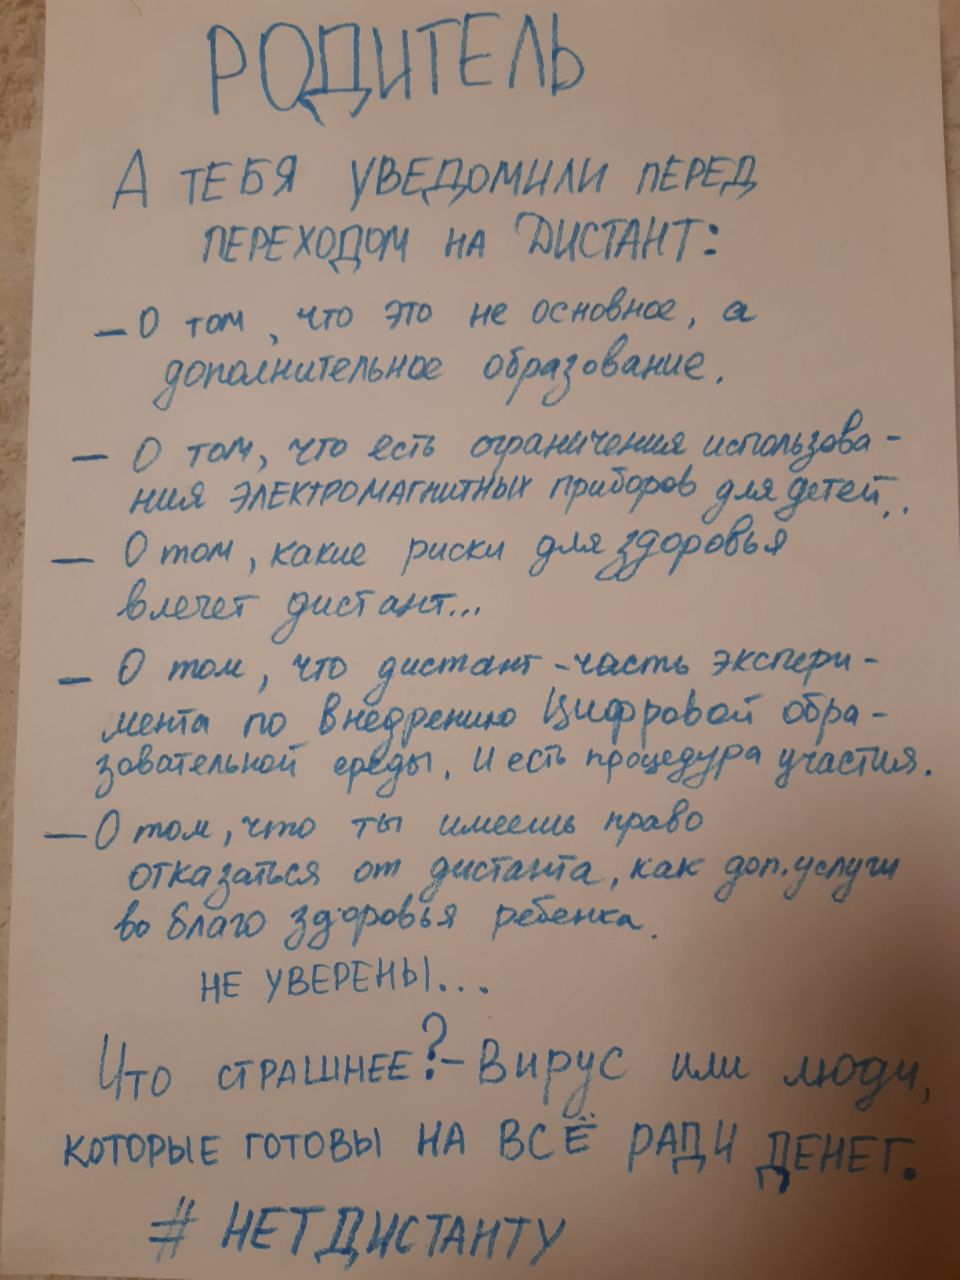 РОДИТЕЛЬ
А ТЕБЯ УВЕДОМИЛИ ПЕРЕД
ПЕРЕХОДОМ НА ДИСТАНТ:
— О том, что это не основное, а
дополнительное образование.
— О том, что есть ограничения использова-
ния ЭЛЕКТРОМАГНИТНЫХ приборов для детей...
— О том, какие риски для здоровья
влечет дистант...
— О том, что дистант - часть экспери-
мента по внедрению Цифровой обра-
зовательной среды. И есть процедура участия.
— О том, что ты имеешь право
отказаться от дистанта, как доп. услуги
во благо здоровья ребенка.
НЕ УВЕРЕНЫ...
Что СТРАШНЕЕ? - Вирус или люди,
КОТОРЫЕ ГОТОВЫ НА ВСЁ РАДИ ДЕНЕГ.
# НЕТДИСТАНТУ